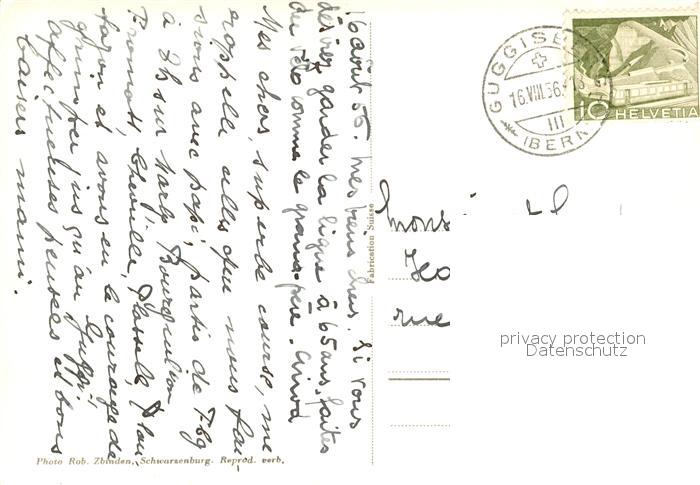 16 août 56. Mes biens chers. Si vous
désirez garder la ligne à 65 ans, faites
du vélo comme le grand-père.
Mes chers, superbe course, me
rappelle celles que nous fai-
sions avec papi, partis de Fbg
à 8h sur Marly, Bourguillon
Chevrilles, Plasselb, Plan-
fayon et avons eu le courage de
grimper jusqu'au Guggi.
affectueuses pensées et bons
baisers mami.
Photo Rob. Zbinden, Schwarzenburg. Reprod. verb.
Fabrication Suisse
GUGGISBERG
16.VIII.56
III
(BERN)
10 HELVETIA
Mons
rue
privacy protection
Datenschutz